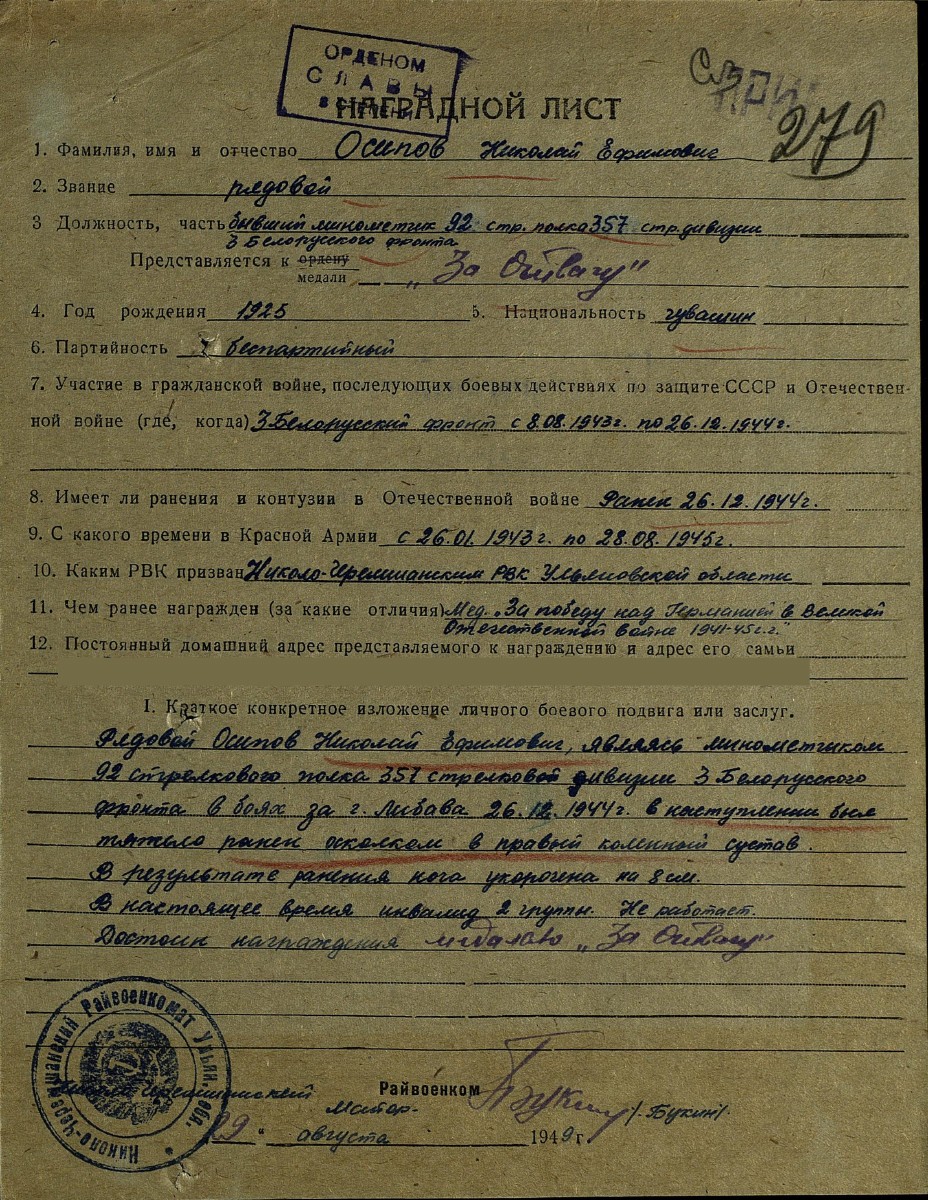 ОРДЕНОМ
СЛАВЫ
СТЕПЕНИ
НАГРАДНОЙ ЛИСТ
279
1. Фамилия, имя и отчество Осипов Николай Ефимович
2. Звание рядовой
3 Должность, часть бывший минометчик 92 стр. полка 357 стр. дивизии
3 Белорусского фронта
Представляется к ордену
медали „За Отвагу"
4. Год рождения 1925 5. Национальность чувашин
6. Партийность беспартийный
7. Участие в гражданской войне, последующих боевых действиях по защите СССР и Отечествен-
ной войне (где, когда) 3 Белорусский фронт с 8.08.1943г. по 26.12.1944г.
8. Имеет ли ранения и контузии в Отечественной войне Ранен 26.12.1944г.
9. С какого времени в Красной Армии с 26.01.1943г. по 28.08.1945г.
10. Каким РВК призван Николо-Черемшанским РВК Ульяновской области
11. Чем ранее награжден (за какие отличия) Мед. „За победу над Германией в Великой
Отечественной войне 1941-45г.г."
12. Постоянный домашний адрес представляемого к награждению и адрес его семьи
I. Краткое конкретное изложение личного боевого подвига или заслуг.
Рядовой Осипов Николай Ефимович, являясь минометчиком
92 стрелкового полка 357 стрелковой дивизии 3 Белорусского
фронта в боях за г. Либава 26.12.1944г. в наступлении был
тяжело ранен осколком в правый коленный сустав.
В результате ранения нога укорочена на 8 см.
В настоящее время инвалид 2 группы. Не работает.
Достоин награждения медалью „За Отвагу"
Николо-Черемшанский Райвоенкомат Ульян. обл.
Райвоенком
Майор /Букин/
29 " августа 1949 г